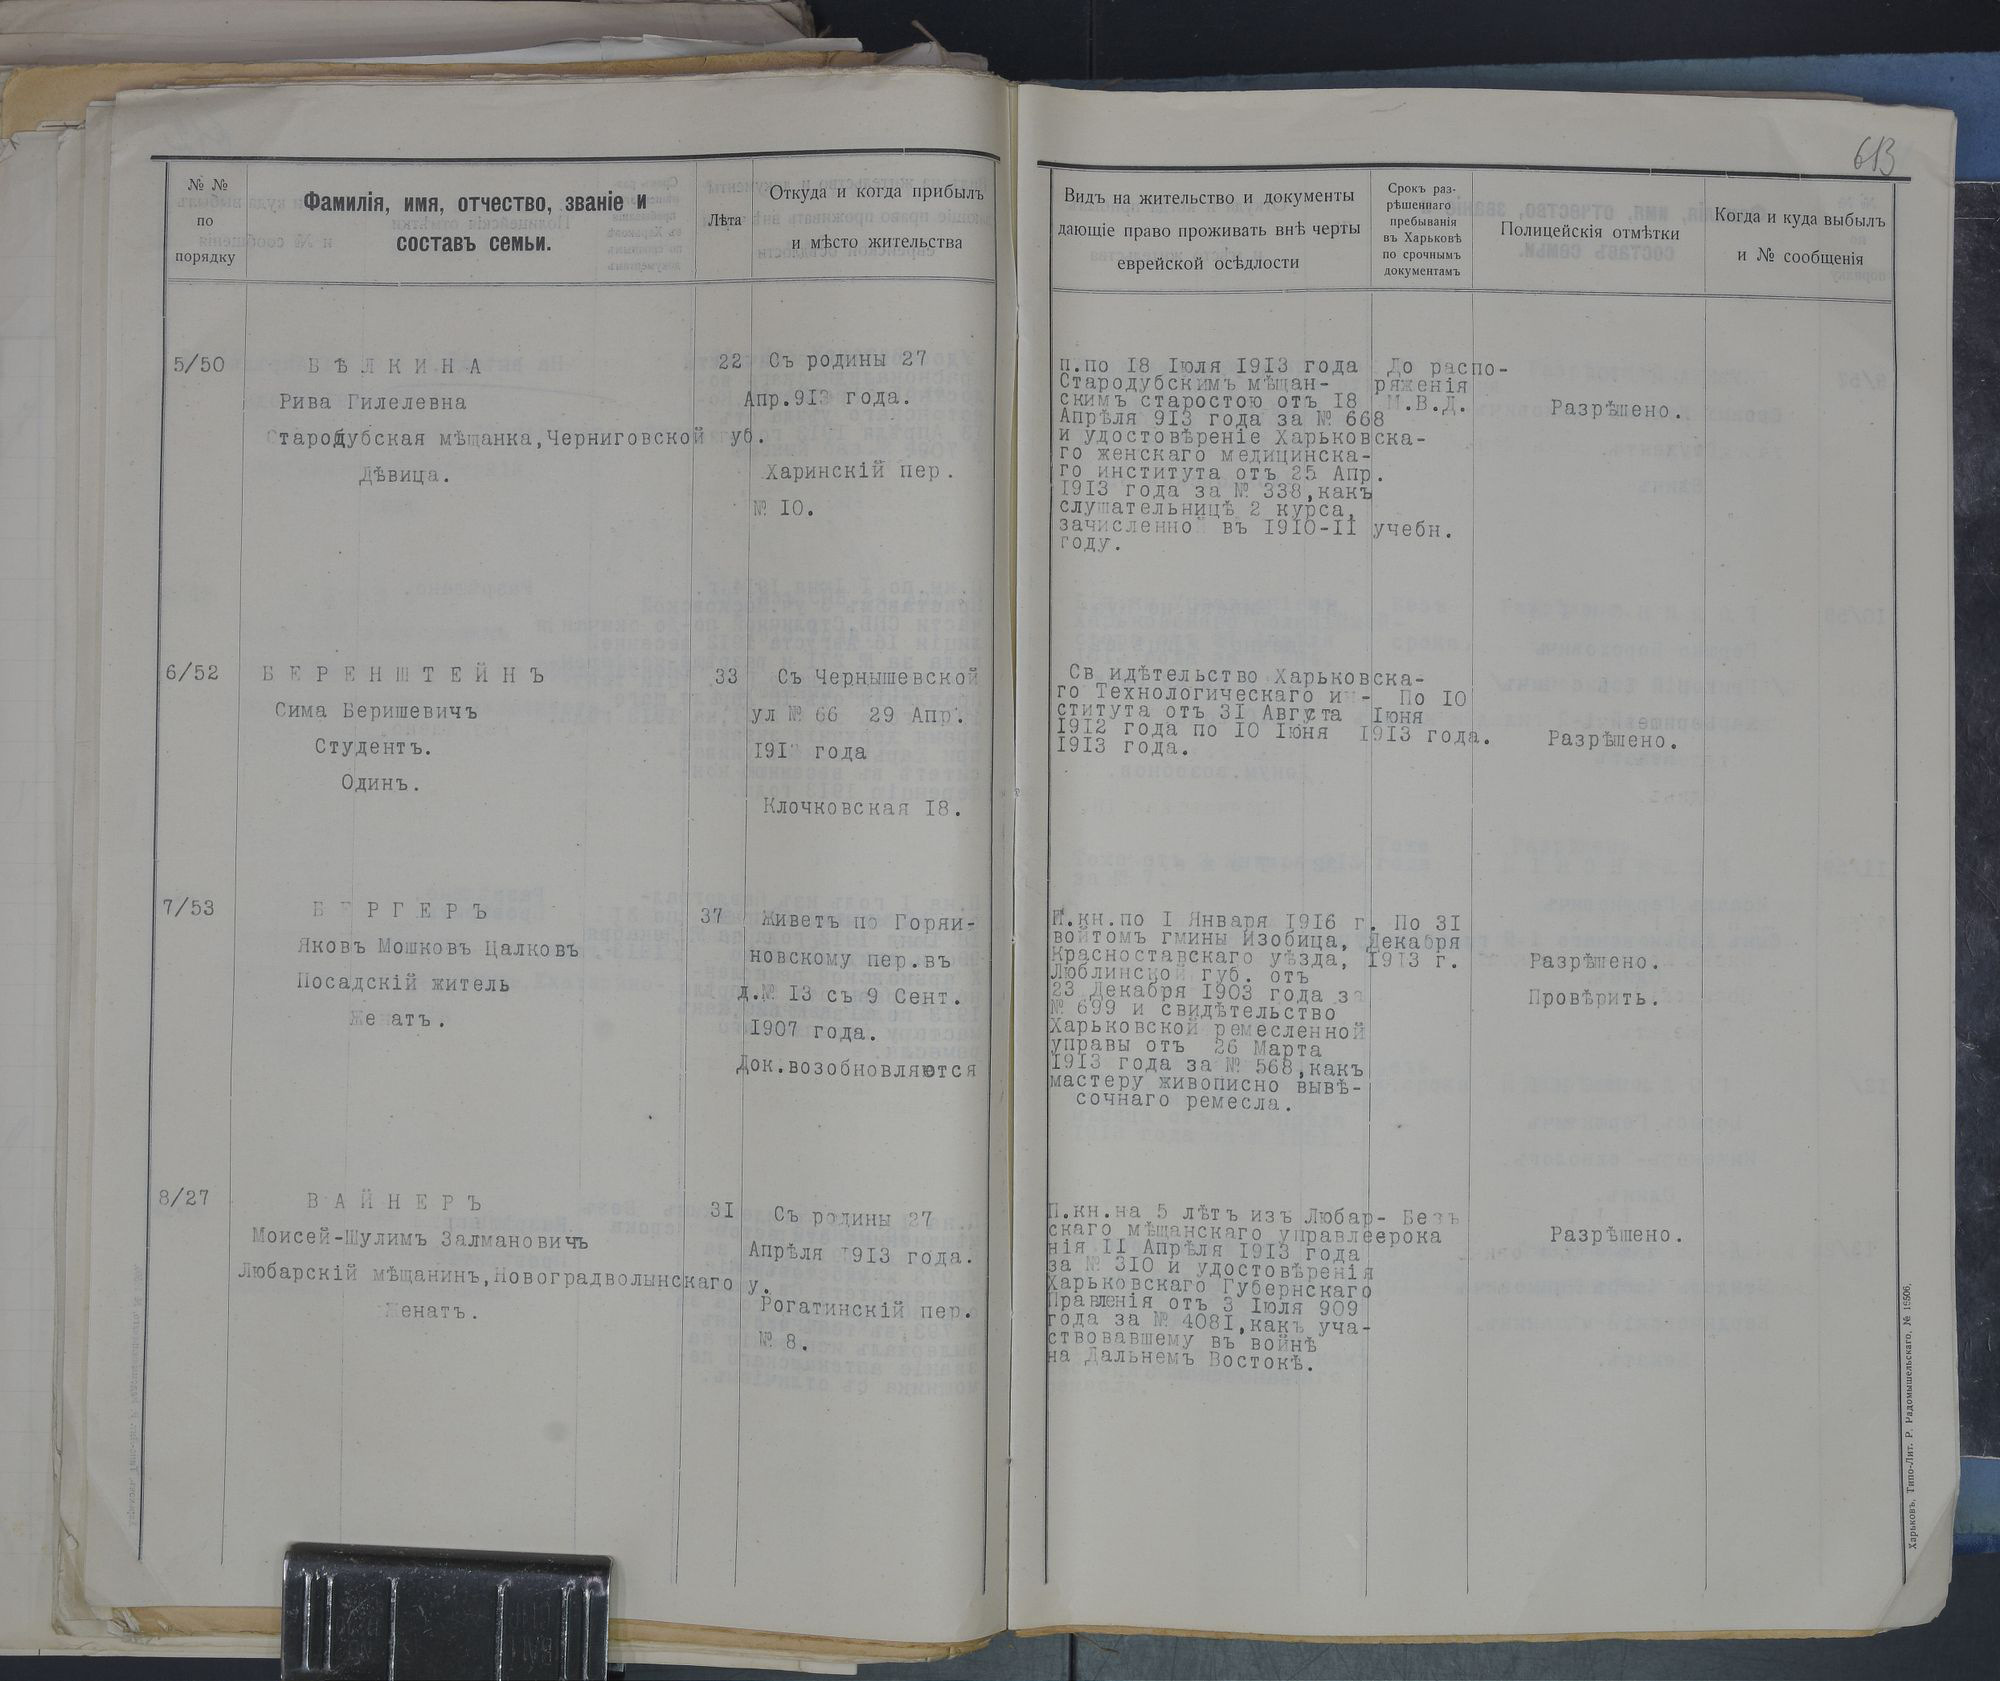 613
№ №
по
порядку
Фамилія, имя, отчество, званіе и
составъ семьи.
Лѣта
Откуда и когда прибылъ
и мѣсто жительства
Видъ на жительство и документы
дающіе право проживать внѣ черты
еврейской осѣдлости
Срокъ раз-
рѣшеннаго
пребыванія
въ Харьковѣ
по срочнымъ
документамъ
Полицейскія отмѣтки
Когда и куда выбылъ
и № сообщенія
5/50
БѢЛКИНА
Рива Гилелевна
Стародубская мѣщанка,Черниговской уб.
Дѣвица.
22
Съ родины 27
Апр.913 года.
Харинскій пер.
№ I0.
п.по I8 Іюля I9I3 года
Стародубскимъ мѣщан-
скимъ старостою отъ I8
Апрѣля 9I3 года за № 668
и удостовѣреніе Харьковска-
го женскаго медицинска-
го института отъ 25 Апр.
I9I3 года за № 338,какъ
слушательницѣ 2 курса,
зачисленно въ I9I0-II учебн.
году.
До распо-
ряженія
М.В.Д.
Разрѣшено.
6/52
БЕРЕНШТЕЙНЪ
Сима Беришевичъ
Студентъ.
Одинъ.
33
Съ Чернышевской
ул № 66 29 Апр.
I9I года
Клочковская I8.
Св идѣтельство Харьковска-
го Технологическаго ин-
ститута отъ 3I Августа
I9I2 года по I0 Іюня
I9I3 года.
По I0
Іюня
I9I3 года.
Разрѣшено.
7/53
БЕРГЕРЪ
Яковъ Мошковъ Цалковъ
Посадскій житель
Же атъ.
37
Живетъ по Горяи-
новскому пер.въ
д.№ I3 съ 9 Сент.
I907 года.
Док.возобновляются
П.кн.по I Января I9I6 г.
войтомъ гмины Изобица,
Красноставскаго уѣзда,
Люблинской губ. отъ
23 Декабря I903 года за
№ 699 и свидѣтельство
Харьковской ремесленной
управы отъ 26 Марта
I9I3 года за № 568,какъ
мастеру живописно вывѣ-
сочнаго ремесла.
По 3I
Декабря
I9I3 г.
Разрѣшено.
Провѣрить.
8/27
ВАЙНЕРЪ
Моисей-Шулимъ Залмановичъ
Любарскій мѣщанинъ,Новоградволынскаго у.
Женатъ.
3I
Съ родины 27
Апрѣля I9I3 года.
Рогатинскій пер.
№ 8.
П.кн.на 5 лѣтъ изъ Любар-
скаго мѣщанскаго управле
нія II Апрѣля I9I3 года
за № 3I0 и удостовѣренія
Харьковскаго Губернскаго
Правленія отъ 3 Іюля 909
года за № 408I,какъ уча-
ствовавшему въ войнѣ
на Дальнемъ Востокѣ.
Безъ
ерока
Разрѣшено.
Харьковъ, Типо-Лит. Р. Радомышельскаго, № 15506.